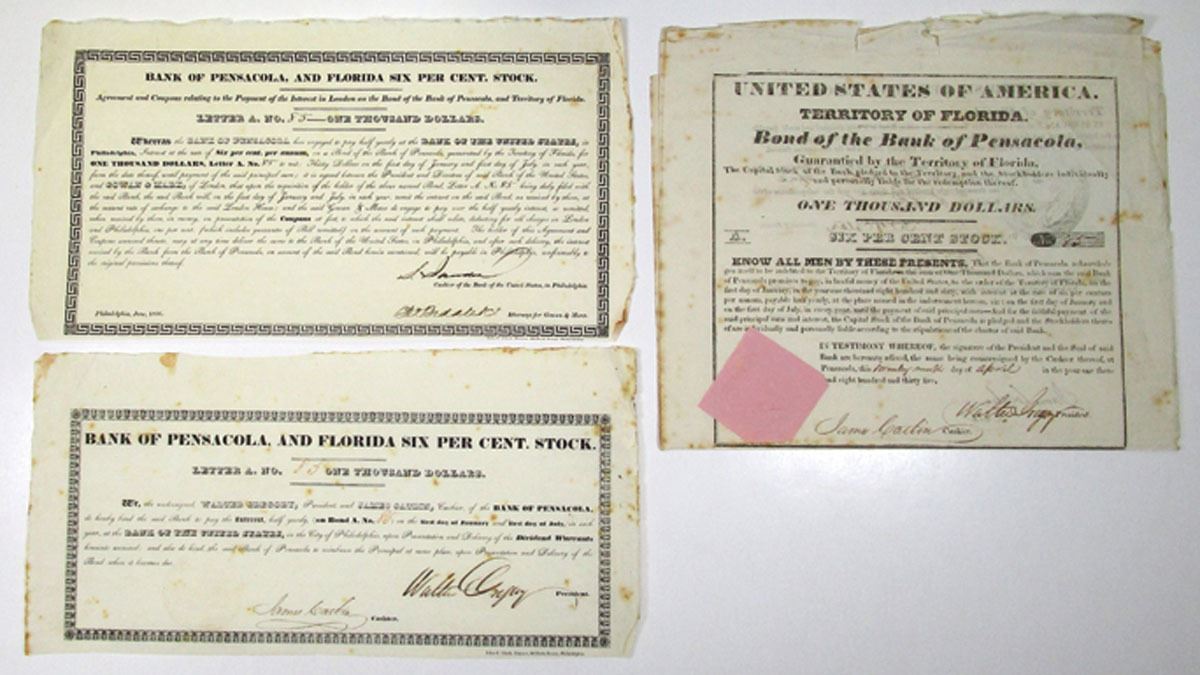 BANK OF PENSACOLA, AND FLORIDA SIX PER CENT. STOCK.
Agreement and Coupons relating to the Payment of the Interest in London on the Bond of the Bank of Pensacola, and Territory of Florida.
LETTER A. NO. 85—ONE THOUSAND DOLLARS.
Whereas the BANK OF PENSACOLA has engaged to pay half yearly at the BANK OF THE UNITED STATES, in
Philadelphia, Interest at the rate of Six per cent. per annum, on a Bond of the Bank of Pensacola, guaranteed by the Territory of Florida, for
ONE THOUSAND DOLLARS, Letter A. No. 85 to wit: Thirty Dollars on the first day of January and first day of July, in each year,
from the date thereof, until payment of the said principal sum; it is agreed between the President and Directors of said Bank of the United States,
and GOWAN & MARX, of London, that upon the requisition of the holder of the above named Bond, Letter A. N. 85 being duly filed with
the said Bank, the said Bank will, on the first day of January and July, in each year, remit the interest on the said Bond, as received by them, at
the current rate of exchange to the said London House: and the said Gowan & Marx do engage to pay over the half yearly interest, so remitted,
when received by them, in money, on presentation of the Coupons at foot, to which the said interest shall relate, deducting for all charges in London
and Philadelphia, one per cent. (which includes guarantee of Bill remitted) on the amount of each payment. The holder of this Agreement and
Coupons annexed thereto, may at any time deliver the same to the Bank of the United States, in Philadelphia, and after such delivery, the interest
received by the Bank from the Bank of Pensacola, on account of the said Bond herein mentioned, will be payable in Philadelphia, conformably to
the original provisions thereof.
Cashier of the Bank of the United States, in Philadelphia.
Philadelphia, June, 1836.
Attorney for Gowan & Marx.
BANK OF PENSACOLA, AND FLORIDA SIX PER CENT. STOCK.
LETTER A. NO. 85 ONE THOUSAND DOLLARS.
We, the undersigned, WALTER GREGORY, President, and JAMES CATLIN, Cashier, of the BANK OF PENSACOLA,
do hereby bind the said Bank to pay the Interest, half yearly, (on Bond A. No. 85) on the first day of January and first day of July, in each
year, at the BANK OF THE UNITED STATES, in the City of Philadelphia, upon Presentation and Delivery of the Dividend Warrants
hereunto annexed: and also do bind the said Bank of Pensacola to reimburse the Principal at same place, upon Presentation and Delivery of the
Bond when it becomes due.
Walter Gregory President.
James Catlin Cashier.
UNITED STATES OF AMERICA.
TERRITORY OF FLORIDA.
Bond of the Bank of Pensacola,
Guarantied by the Territory of Florida.
The Capital Stock of the Bank, pledged to the Territory, and the Stockholders individually
and personally liable for the redemption thereof.
ONE THOUSAND DOLLARS.
A. SIX PER CENT STOCK.
KNOW ALL MEN BY THESE PRESENTS, That the Bank of Pensacola acknowledges
itself to be indebted to the Territory of Florida in the sum of One Thousand Dollars, which sum the said Bank
of Pensacola promises to pay, in lawful money of the United States, to the order of the Territory of Florida, on the
first day of January, in the year one thousand eight hundred and sixty, with interest at the rate of six per centum
per annum, payable half yearly, at the place named in the indorsement hereon, viz: on the first day of January and
on the first day of July, in every year, until the payment of said principal sum—And for the faithful payment of the
said principal sum and interest, the Capital Stock of the Bank of Pensacola is pledged and the Stockholders there-
of are individually and personally liable according to the stipulations of the charter of said Bank.
IN TESTIMONY WHEREOF, the signature of the President and the Seal of said
Bank are hereunto affixed, the same being countersigned by the Cashier thereof, at
Pensacola, this twenty ninth day of April in the year one thou-
sand eight hundred and thirty five.
Walter Gregory President.
James Catlin Cashier.